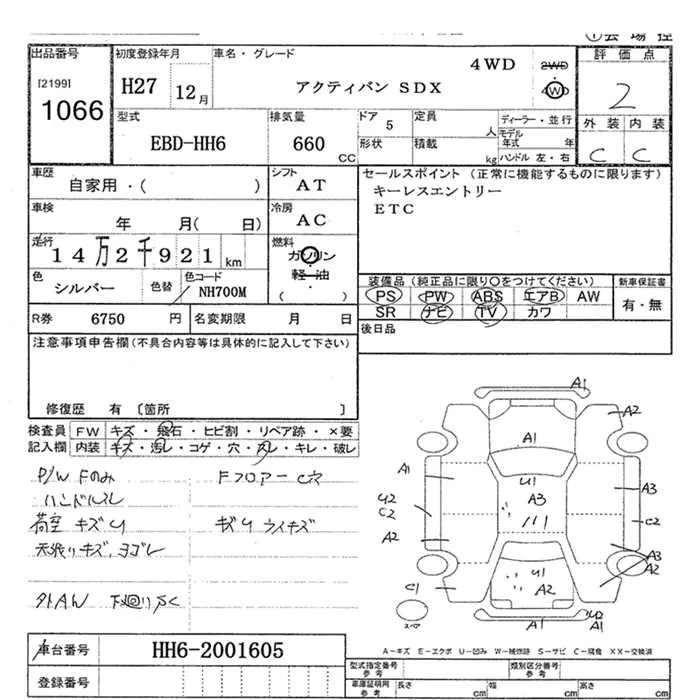 出品番号 初度登録年月 車名・グレード 評価点
[2199] 1066 H27 12月 アクティバン SDX 4WD 2WD 4WD 2
型式 排気量 ドア 定員 ディーラー・並行 外装 内装
EBD-HH6 660 CC 5 人 モデル年式 年 C C
形状 積載 kg ハンドル 左・右
車歴 シフト セールスポイント (正常に機能するものに限ります)
自家用・( ) AT キーレスエントリー
車検 冷房 ETC
年 月( 日) AC
走行 燃料
14万2千921 km ガソリン
色 色替 色コード 軽・油
シルバー NH700M ( )
装備品 (純正品に限り○をつけてください) 新車保証書
PS PW ABS エアB AW 有・無
SR ナビ TV カワ
R券 6750 円 名変期限 月 日 後日品
注意事項申告欄(不具合内容等は具体的に記入して下さい)
修復歴 有 [箇所 ]
検査員 FW キズ・飛石・ヒビ割・リペア跡・×要
記入欄 内装 キズ・汚レ・コゲ・穴・スレ・キレ・破レ
P/W Fのみ Fフロアー C穴
ハンドルスレ
荷室 キズU キズU ライキズ
天張りキズ、ヨゴレ
外AW 下廻りサC
A1
A2
A1
A1 U1
A3 A3
U2
C2 C2
A2 A3
A2
C1 U1
A2
スペア U2
A1
A-キズ E-エクボ U-凹み W-補修跡 S-サビ C-腐食 XX-交換済
車台番号 HH6-2001605
登録番号
型式指定番号 参考 類別区分番号 参考
車庫証明用 参考 長さ cm 幅 cm 高さ cm